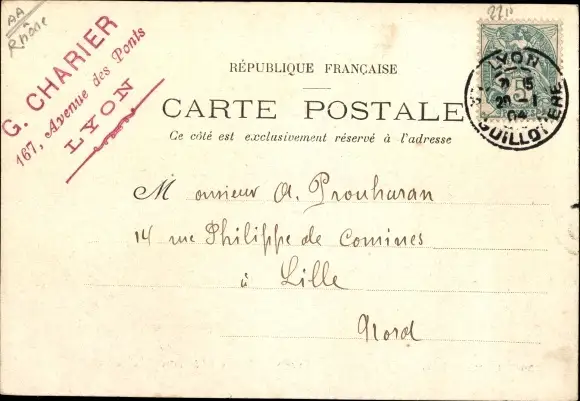 AA
Rhône
2210
G. CHARIER
167, Avenue des Ponts
LYON
RÉPUBLIQUE FRANÇAISE
CARTE POSTALE
Ce côté est exclusivement réservé à l'adresse
LYON
GUILLOTIERE
5
Monsieur A. Prouharan
14 rue Philippe de Comines
à Lille
Nord